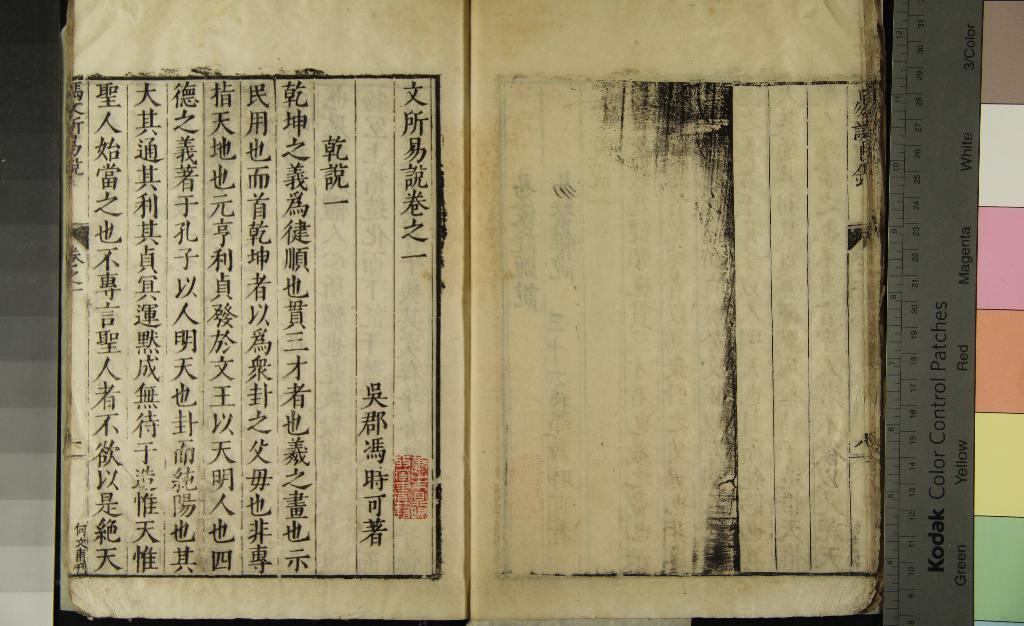 文所易說卷之一
吳郡馮時可著
乾說一
乾坤之義為健順也貫三才者也羲之畫也示
民用也而首乾坤者以為衆卦之父母也非專
指天地也元亨利貞發於文王以天明人也四
德之義著于孔子以人明天也卦而純陽也其
大其通其利其貞冥運黙成無待于造惟天惟
聖人始當之也不專言聖人者不欲以是絕天
馮文所易說
卷之一
一
何文甫刊
Kodak Color Control Patches
Green
Yellow
Red
Magenta
White
3/Color